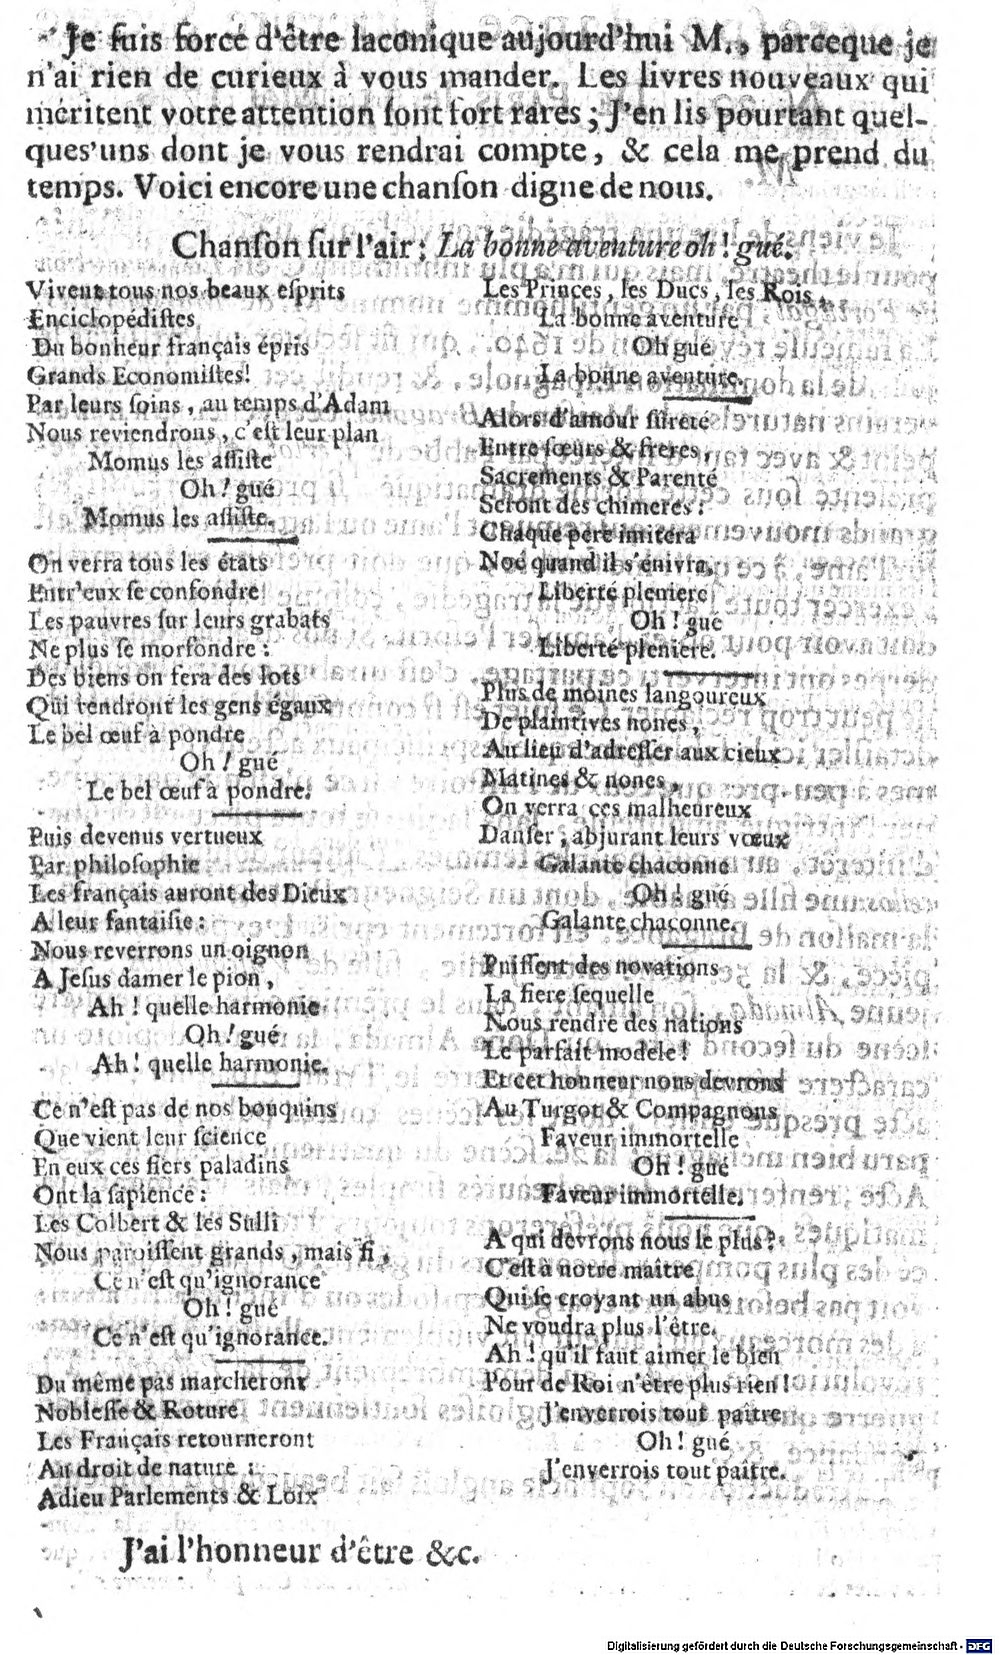 Je ſuis forcé d'être laconique aujourd'hui M., parceque je
n'ai rien de curieux à vous mander. Les livres nouveaux qui
méritent votre attention ſont fort rares; J'en lis pourtant quel-
ques'uns dont je vous rendrai compte, & cela me prend du
temps. Voici encore une chanſon digne de nous.
Chanſon ſur l'air: La bonne aventure oh! gué.
Vivent tous nos beaux eſprits
Enciclopédiſtes
Du bonheur français épris
Grands Economiſtes!
Par leurs ſoins, au temps d'Adam
Nous reviendrons, c'eſt leur plan
Momus les aſſiſte
Oh! gué
Momus les aſſiſte.
On verra tous les états
Entr'eux ſe confondre
Les pauvres ſur leurs grabats
Ne plus ſe morfondre:
Des biens on fera des lots
Qui rendront les gens égaux
Le bel œuf à pondre
Oh! gué
Le bel œuf à pondre.
Puis devenus vertueux
Par philoſophie
Les français auront des Dieux
A leur fantaiſie:
Nous reverrons un oignon
A Jeſus damer le pion,
Ah! quelle harmonie
Oh! gué
Ah! quelle harmonie.
Ce n'eſt pas de nos bouquins
Que vient leur ſcience
En eux ces fiers paladins
Ont la ſapience:
Les Colbert & les Sulli
Nous paroiſſent grands, mais fi,
Ce n'eſt qu'ignorance
Oh! gué
Ce n'eſt qu'ignorance.
Du même pas marcheront
Nobleſſe & Roture
Les Français retourneront
Au droit de nature:
Adieu Parlements & Loix
Les Princes, les Ducs, les Rois,
La bonne aventure
Oh gué
La bonne aventure.
Alors d'amour ſûreté
Entre ſœurs & freres,
Sacrements & Parenté
Seront des chimeres:
Chaque pere imitera
Noé quand il s'énivra,
Liberté pleniere
Oh! gué
Liberté pleniere.
Plus de moines langoureux
De plaintives nones,
Au lieu d'adreſſer aux cieux
Matines & nones,
On verra ces malheureux
Danſer, abjurant leurs vœux
Galante chaconne
Oh! gué
Galante chaconne.
Puiſſent des novations
La fiere ſequelle
Nous rendre des nations
Le parfait modele!
Et cet honneur nous devrons
Au Turgot & Compagnons
Faveur immortelle
Oh! gué
Faveur immortelle.
A qui devrons nous le plus?
C'eſt à notre maître
Qui ſe croyant un abus
Ne voudra plus l'être.
Ah! qu'il faut aimer le bien
Pour de Roi n'être plus rien!
J'enverrois tout paître
Oh! gué
J'enverrois tout paître.
J'ai l'honneur d'être &c.
Digitalisierung gefördert durch die Deutsche Forschungsgemeinschaft - DFG